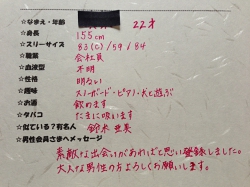 ☆なまえ・年齢 22才
☆身長 155cm
☆スリーサイズ 83(C)/59/84
☆職業 会社員
☆血液型 不明
☆性格 明るい
☆趣味 スノーボード・ピアノ・犬と遊ぶ
☆お酒 飲めます
☆タバコ たまに吸います
☆似ている?有名人 鈴木亜美
☆男性会員さまへメッセージ
素敵な出会いがあればと思い登録しました。
大人な男性の方よろしくお願いします。